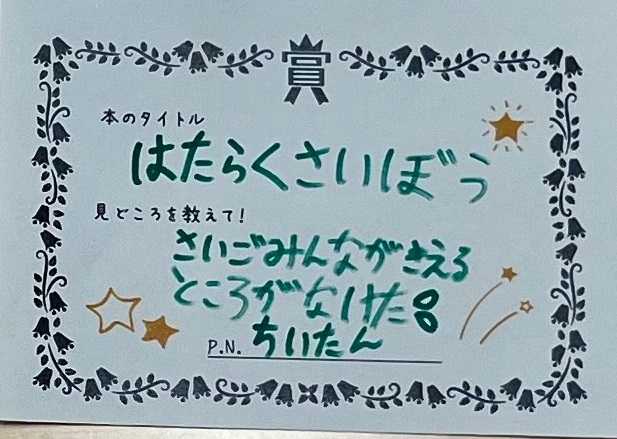 賞
本のタイトル
はたらくさいぼう
見どころを教えて!
さいごみんながきえる
ところがなけた
P.N. ちいたん